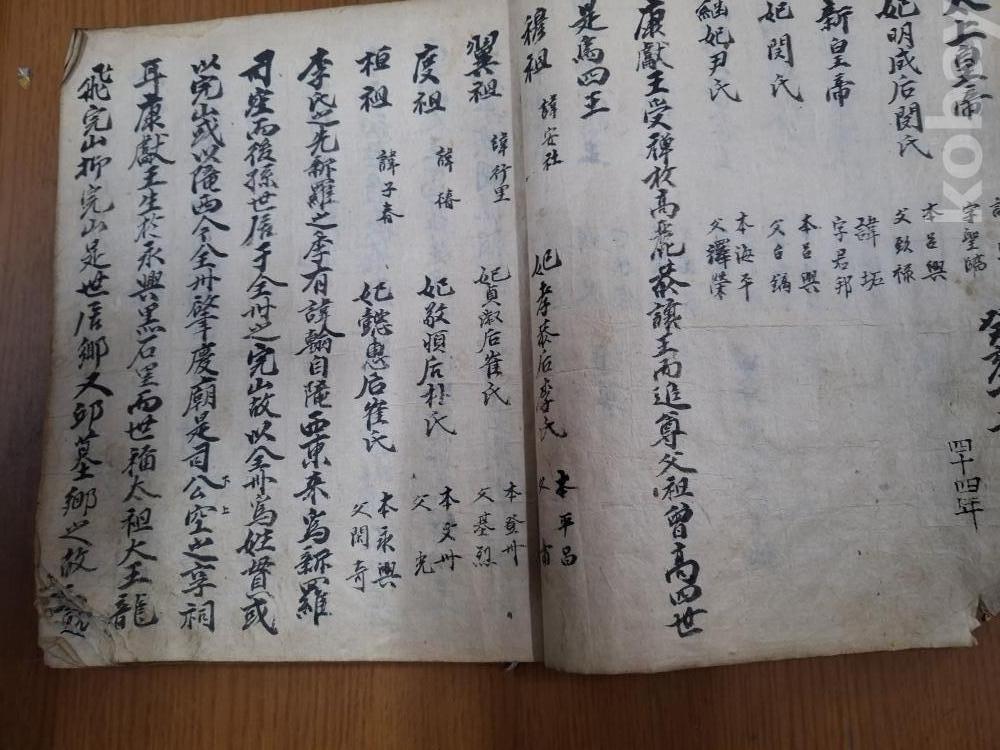 太上皇帝
妃明成后閔氏
本呂興
父致祿
新皇帝
諱坧
字君邦
妃閔氏
本呂興
父台鎬
繼妃尹氏
本海平
父澤榮
康獻王受禪於高麗恭讓王而追尊父祖曾高四世
是爲四王
穆祖 諱安社 妃孝恭后李氏 本平昌
翼祖 諱行里 妃貞淑后崔氏 本登州
父基烈
度祖 諱椿 妃敬順后朴氏 本文州
父光
桓祖 諱子春 妃懿惠后崔氏 本永興
父閑奇
李氏之先新羅之李有諱翰自隴西東来爲新羅
司空而後孫世居于全州之完山故以全州爲姓貫或
以完山或以隴西今全州肇慶廟是司公空之享祠
耳康獻王生於永興黑石里而世稱太祖大王龍
飛完山抑完山是世居鄉又邱墓鄉之故
四十四年
kobay